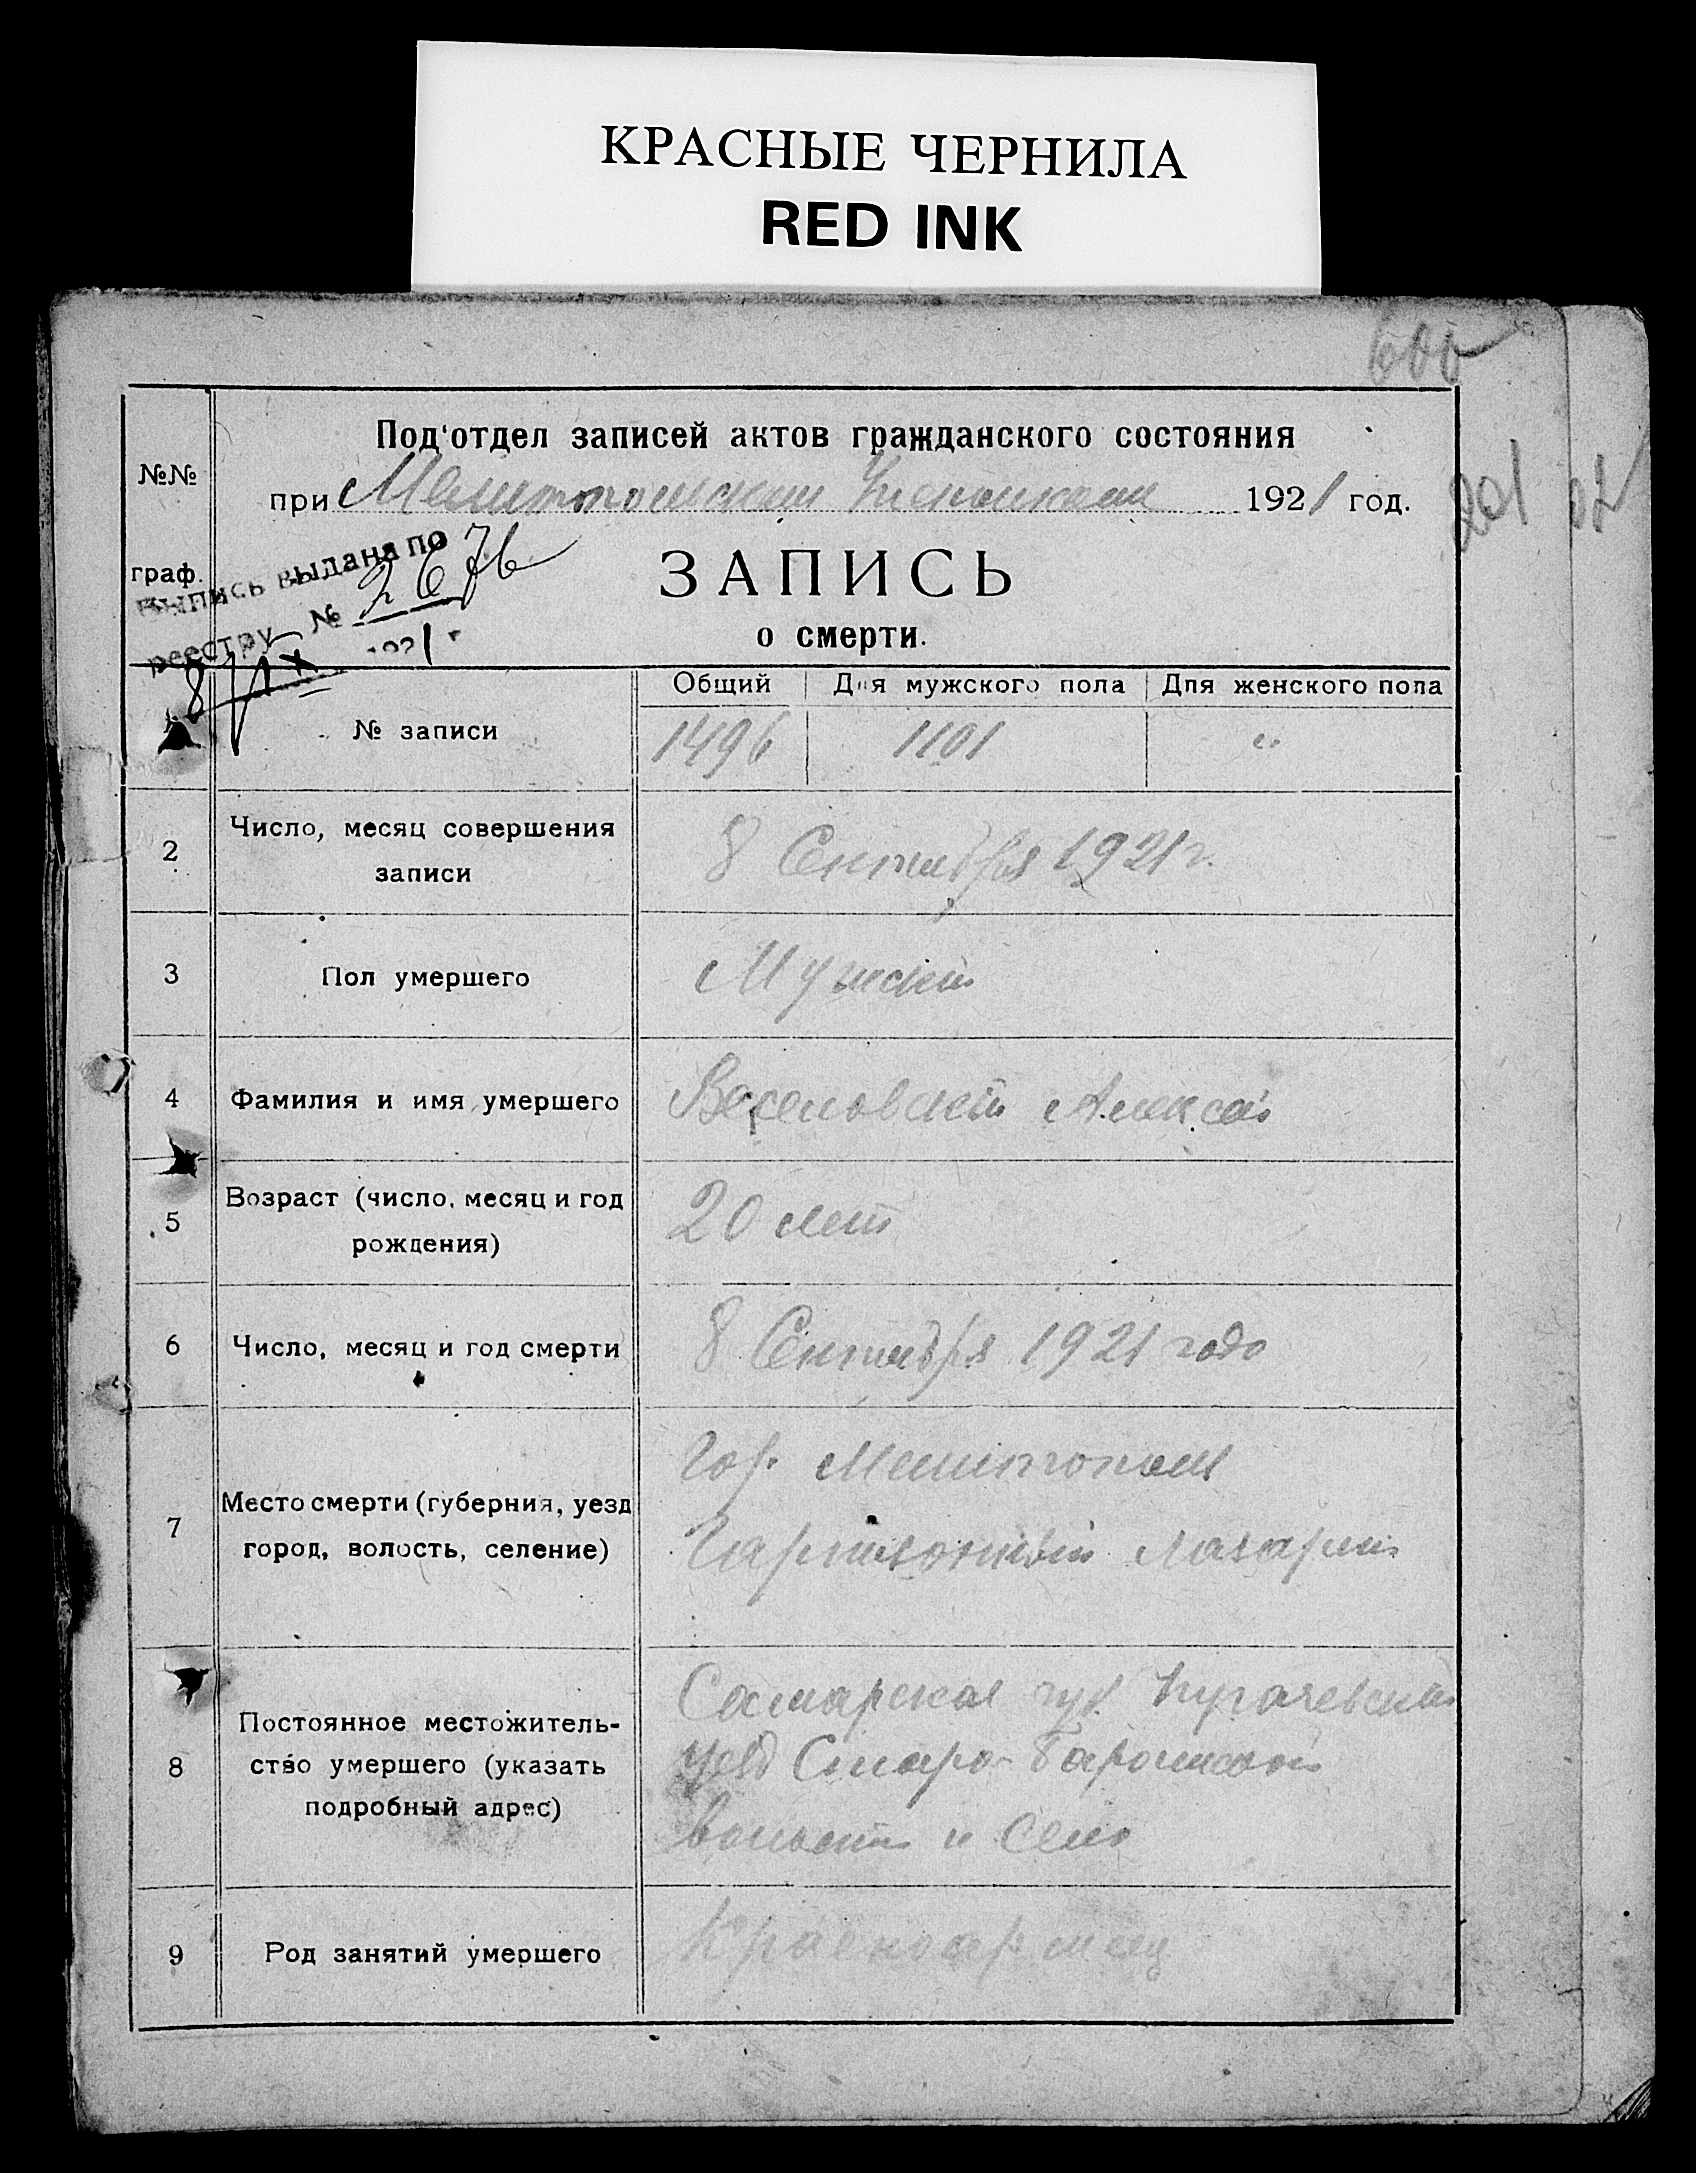 КРАСНЫЕ ЧЕРНИЛА
RED INK
600
201
Под'отдел записей актов гражданского состояния
№№
при Мелитопольском 1921 год.
граф.
Выпись выдана по
реестру № 2676
8/IX 1921 г
ЗАПИСЬ
о смерти.
Общий Для мужского пола Для женского пола
№ записи 1496 1101 "
2 Число, месяц совершения
записи
8 Сентября 1921 г.
3 Пол умершего Мужской
4 Фамилия и имя умершего Веселовский Алексей
5 Возраст (число, месяц и год
рождения)
20 лет
6 Число, месяц и год смерти 8 Сентября 1921 года
7 Место смерти (губерния, уезд
город, волость, селение)
Гор. Мелитополь
Гарнизонный лазарет
8 Постоянное местожитель-
ство умершего (указать
подробный адрес)
Самарская губ. Пугачевский
уезд Старо-
волость и село
9 Род занятий умершего Красноармеец